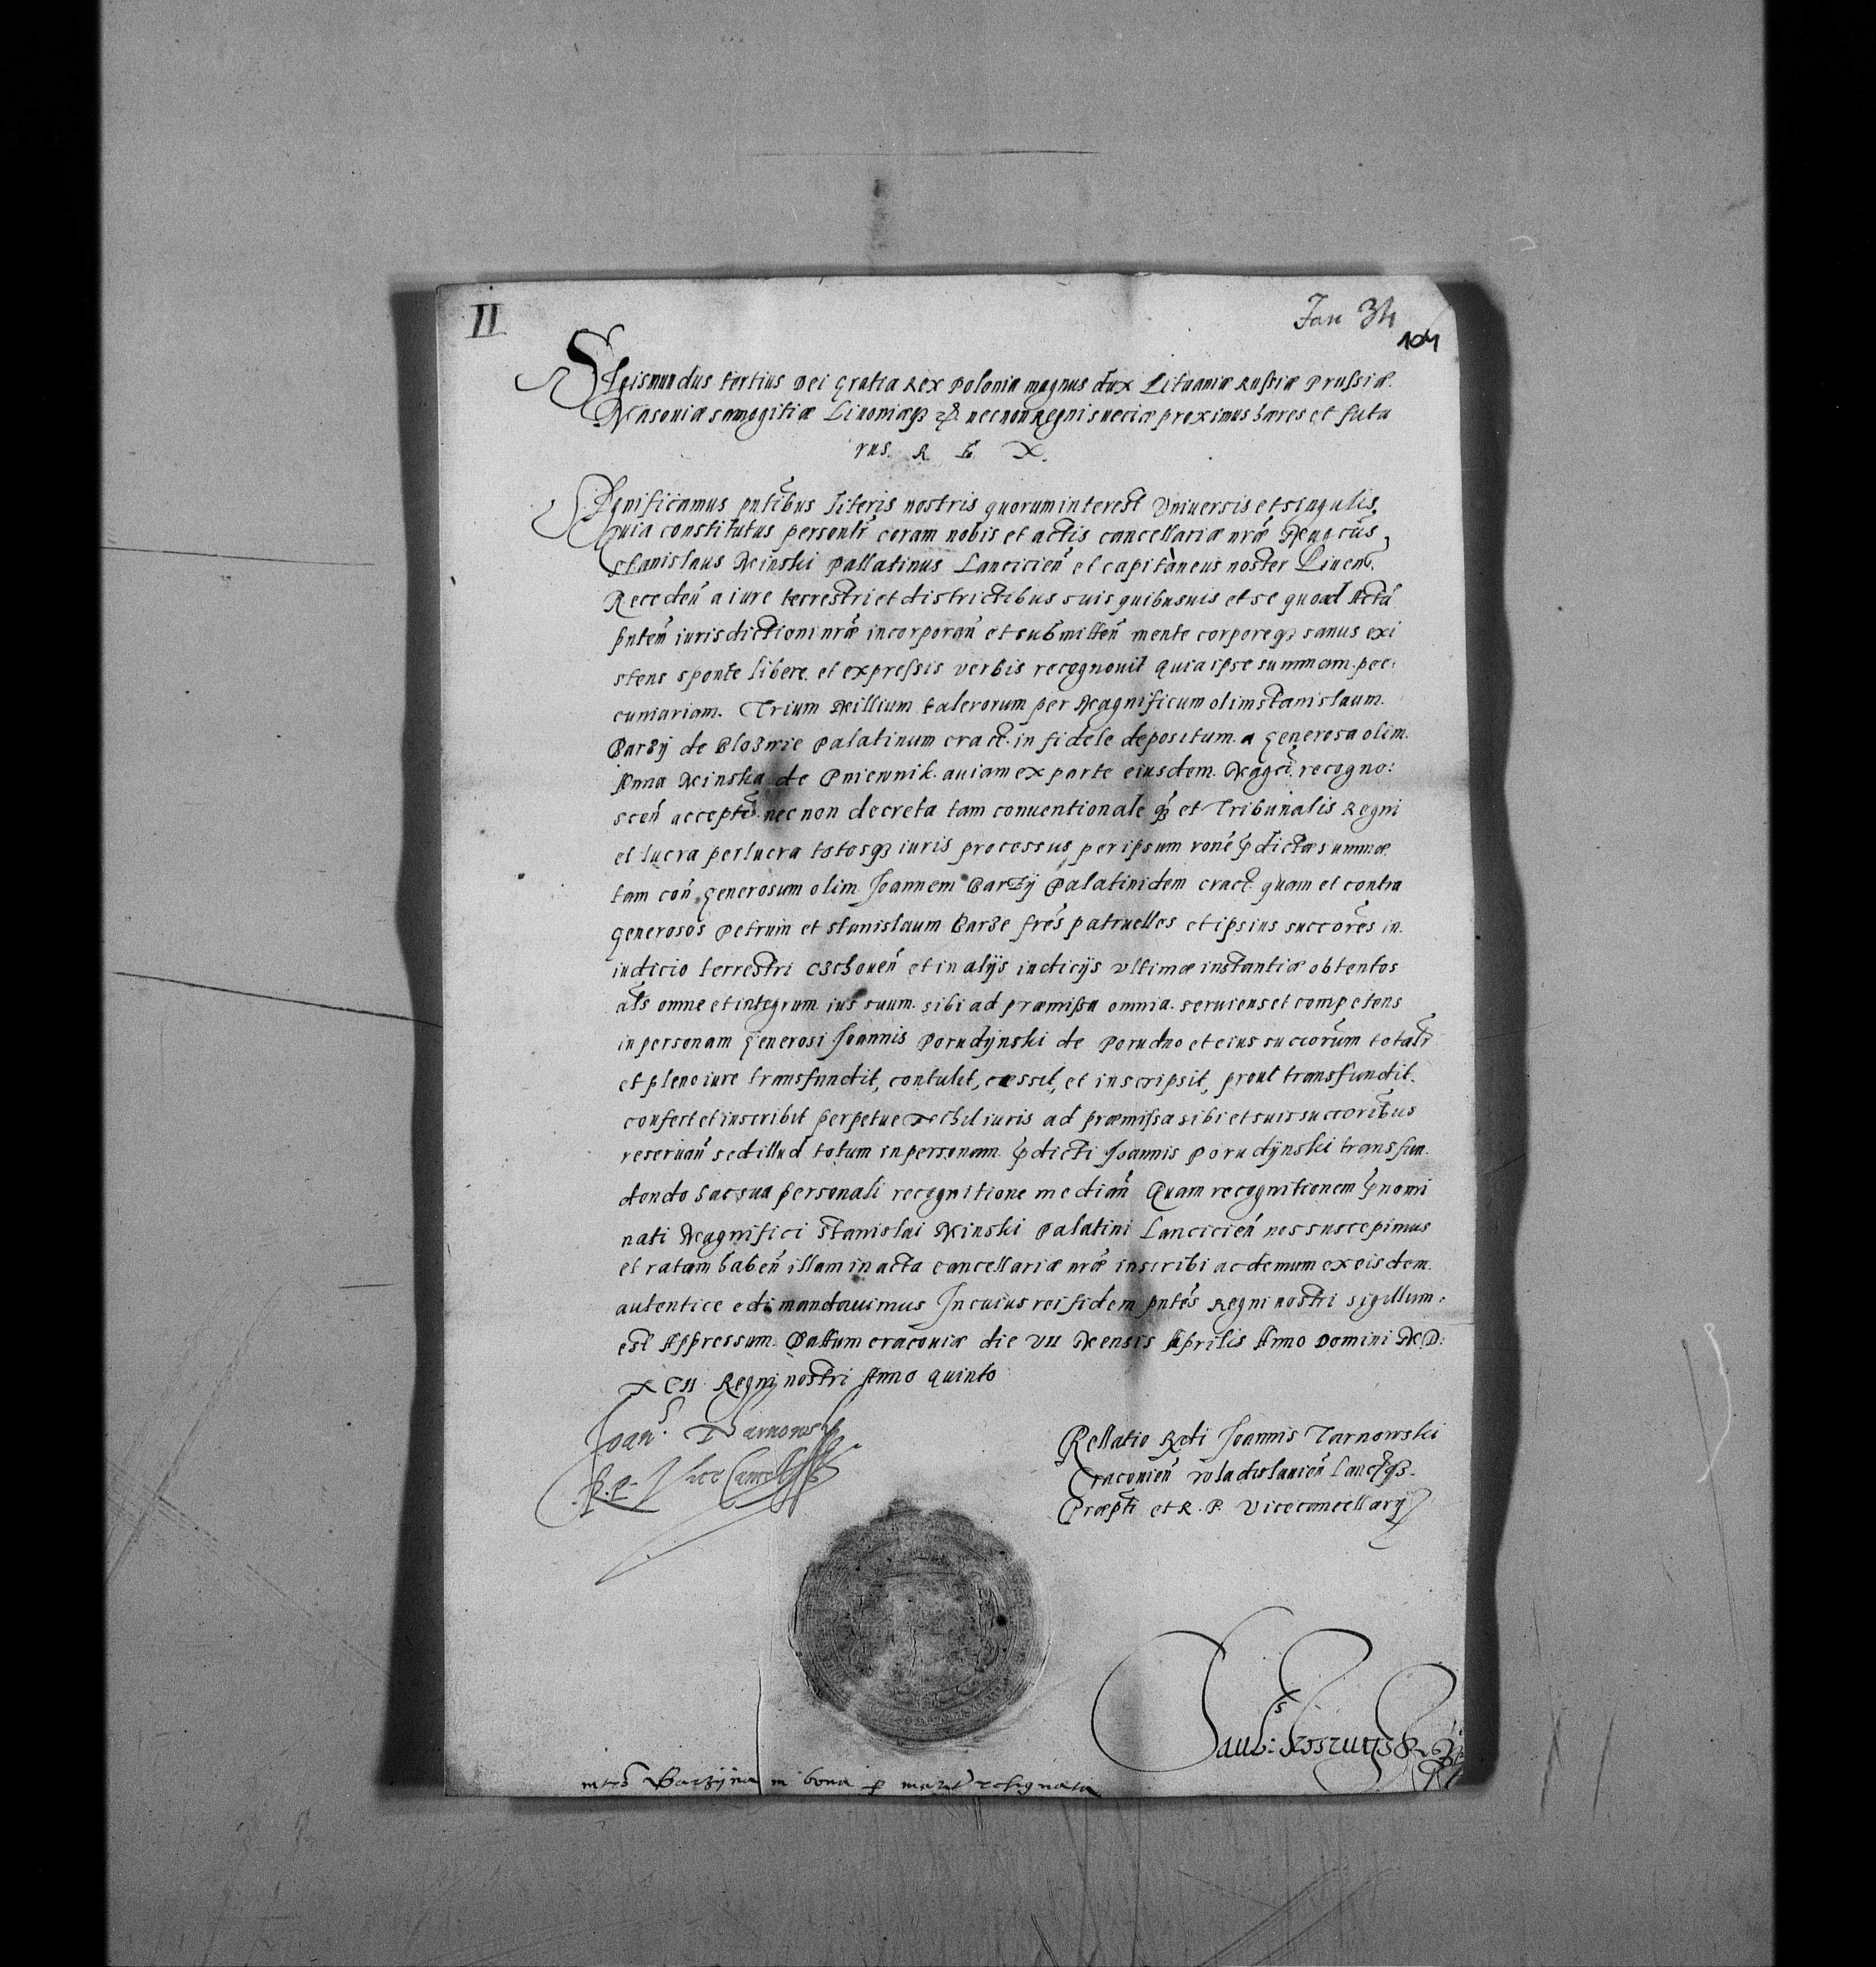 II
Jan 34
104
Sigismundus tertius Dei Gratia Rex Poloniæ magnus dux Lituaniæ Russiæ Prussiæ
Masoviæ Samogitiæ Livoniæq3 &c. necnon Regni Sueciæ proximus hæres et futu
rus R E X.
Significamus pntibus literis nostris quorum interest Vniuersis et singulis,
quia constitutus personlr coram nobis et actis cancellariæ nræ Magcus
Stanislaus Minski Pallatinus Lancicien et capitaneus noster Liuen.
Receden a iure terrestri et districtibus suis quibusuis et se quoad Actu
pnten iurisdictioni nræ incorporan et submitten mente corporeq3 sanus exi
stens sponte libere et expressis verbis recognouit quia ipse summam pec:
cuniariam. Trium Millium talerorum per Magnificum olim Stanislaum
Barzy de Blozwie Palatinum cracc. in fidele depositum a Generosa olim.
Anna Minska de Pniewnik. auiam ex parte eiusdem. Magci. recogno:
scen accepta necnon decreta tam conuentionale q3 et Tribunalis Regni
et lucra perlucra totosq3 iuris processus per ipsum rone pdictæ summæ
tam con Generosum olim Joannem Barzy Palatinidem cracc. quam et contra
Generosos Petrum et Stanislaum Barze fres patruelles et ipsius succores in.
iudicio terrestri Czchouen et in alijs iudicijs vltimæ instantiæ obtentos
als omne et integrum ius suum. sibi ad præmissa omnia. seruiens et competens
in personam Generosi Joannis Porudynski de Porudno et eius succorum totalr
et pleno iure transfundit, contulit, cæssit, et inscripsit, prout transfundit.
confert et inscribit perpetue Nihil iuris ad præmissa sibi et suis succoribus
reseruan sed illud totum in personam pdicti Joannis Porudynski transfun.
dendo hac sua personali recognitione median Quam recognitionem pnomi
nati Magnifici Stanislai Minski Palatini Lancicien nos suscepimus
et ratam haben illam in acta cancellariæ nræ inscribi ac demum ex eisdem.
autentice edi mandauimus In cuius rei fidem pntes Regni nostri sigillum:
est Appressum. Dattum cracouiæ die VII Mensis Aprilis Anno Domini M.D:
XCII Regni nostri Anno quinto
Joan. Tarnowski
R. P. Vice Cancell
Rellatio Rdi Joannis Tarnowski
Cracouien Wladislauien Lancq3.
Præpti et R. P. Vicecancellarij
in bona p resignata